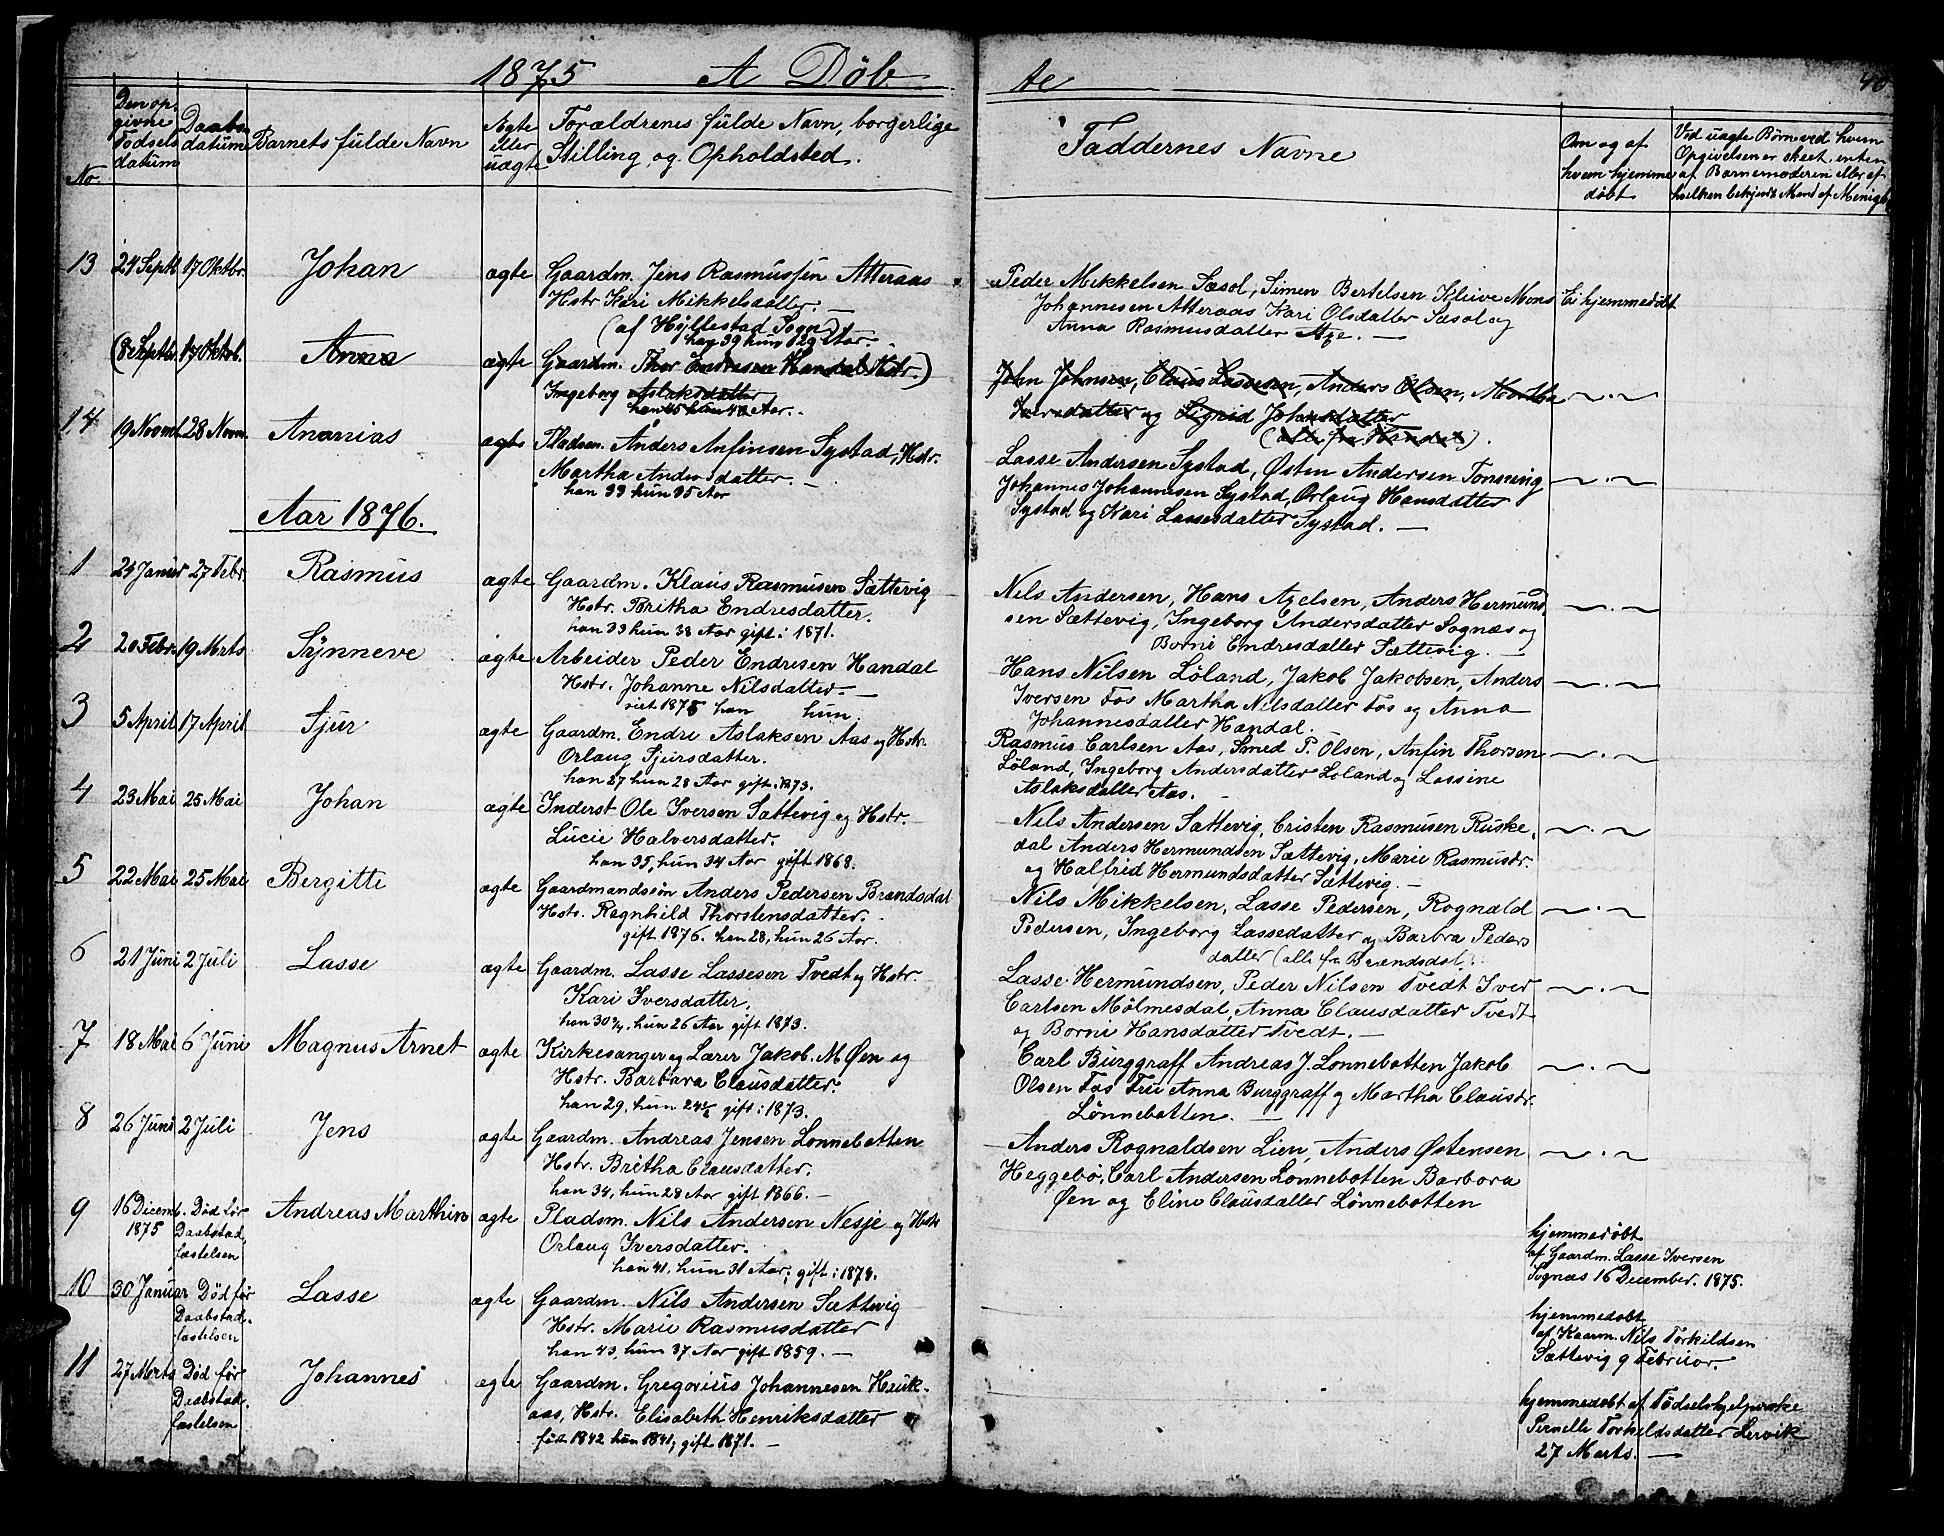 1875 A Døb te 40
No.
Den op-
givne
Fødsels
datum
Daabs-
datum
Barnets fulde Navn
Ægte
eller
uægte
Forældrenes fulde Navn, borgerlige
Stilling og Opholdsted.
Faddernes Navne
Om og af
hvem hjemme
døbt
Ved uægte Børn ved hvem
Opgivelsen er skeet, enten
af Barnemoderen eller af
hvilken bekjendt Mand af Menigh.
13 24 Septb 17 Oktbr. Johan ægte Gaardm. Jens Rasmussen Atteraas
Hstr Kari Mikkelsdatter.
(af Hyllestad Sogn)
han 39 hun 29 Aar.
Peder Mikkelsen Sæsol, Simen Bertelsen Kleive Mons
Johannesen Atteraas Kari Olsdatter Sæsol og
Anna Rasmusdatter Aae. —
Ei hjemmedøbt
(8 Septbr. 17 Oktob. Anna ægte Gaardm. Thor Endresen Handal Hstr.)
Ingeborg Aslaksdatter
han 45 hun 42 Aar.
John Johnsen, Claus Lassesen, Anders Olsen, Martha
Iversdatter og Sigrid Johansdatter
(alle fra Handal).
14 19 Novmb 28 Novm. Ananias ægte Pladsm. Anders Anfinsen Systad, Hstr.
Martha Andersdatter. —
han 33 hun 35 Aar
Lasse Andersen Systad, Østen Andersen Tonning
Johannes Johannesen Systad, Orlaug Hansdatter
Systad og Kari Lassesdatter Systad. —
Aar 1876.
1 24 Januar 27 Febr. Rasmus ægte Gaardm. Klaus Rasmusen Sættevig
Hstr. Britha Endresdatter.
han 33 hun 38 Aar gift i 1871.
Nils Andersen, Hans Axelsen, Anders Hermund-
sen Sættevig, Ingeborg Andersdatter Sognæs og
Borni Endresdatter Sættevig. —
2 20 Febr. 19 Mrts Synneve ægte Arbeider Peder Endresen Handal
Hstr. Johanne Nilsdatter —
viet 1875 han hun
Hans Nilsen Løland, Jakob Jakobsen, Anders
Iversen Fos Martha Nilsdatter Fos og Anna
Johannesdatter Handal.
3 5 April 17 April Sjur ægte Gaardm. Endre Aslaksen Aas og Hstr.
Orlaug Sjursdatter.
han 27 hun 28 Aar gift i 1873.
Rasmus Carlsen Aas, Smed P. Olsen, Anfin Thorsen
Løland, Ingeborg Andersdatter Løland og Lassine
Aslaksdatter Aas.
4 23 Mai 25 Mai Johan ægte Inderst Ole Iversen Sættevig og Hstr.
Lucie Halversdatter.
han 35, hun 34 Aar gift 1868.
Nils Andersen Sættevig, Cristen Rasmusen Ruske-
dal Anders Hermundsen Sættevig, Marie Rasmusdr.
og Halfrid Hermundsdatter Sættevig. —
5 22 Mai 25 Mai Bergitte ægte Gaardmandssøn Anders Pedersen Brandsdal
Hstr. Regnhild Thorstensdatter.
gift 1876. han 28, hun 26 Aar.
Nils Mikkelsen, Lasse Pedersen, Rognald
Pedersen, Ingeborg Lassedatter og Barbra Peders
datter (alle fra Brandsdal.
6 21 Juni 2 Juli Lasse ægte Gaardm. Lasse Lassesen Tvedt og Hstr.
Kari Iversdatter.
han 30¾, hun 26 Aar gift 1873.
Lasse Hermundsen, Peder Nilsen Tvedt Iver
Carlsen Mølmesdal, Anna Clausdatter Tvedt
og Borni Hansdatter Tvedt. —
7 18 Mai 6 Juni Magnus Arnet ægte Kirkesanger og Lærer Jakob. M Øen og
Hstr. Barbara Clausdatter.
han 29, hun 24½ gift i 1873.
Carl Burggraff Andreas J. Lonnebotten Jakob
Olsen Fos Fru Anna Burggraff og Martha Clausdr.
Lønnebotten. —
8 26 Juni 2 Juli Jens ægte Gaardm. Andreas Jensen Lonnebotten
Hstr. Britha Clausdatter.
han 34, hun 28 Aar gift 1866. —
Anders Rognaldsen Lien, Anders Østensen
Heggebø, Carl Andersen Lonnebotten Barbora
Øen og Eline Clausdatter Lønnebotten
9 16 Decemb. 1875 Død før
Daabstad-
fæstelsen
Andreas Marthin ægte Pladsm. Nils Andersen Nesje og Hstr
Orlaug Iversdatter.
han 41, hun 31 Aar; gift i 1874.
hjemmedøbt
af Gaardm. Lasse Iversen
Sognæs 16 December. 1875.
10 30 Januar Død før
Daabstad-
fæstelsen
Lasse ægte Gaardm. Nils Andersen Sættevig
Hstr. Marie Rasmusdatter
han 43, hun 37 Aar gift 1859. —
hjemmedøbt
af Kaarm. Nils Torkildsen
Sættevig 9 Februar.
11 27 Mrts Død før
Daabstad-
fæstelsen
Johannes ægte Gaardm. Gregorius Johannesen Hauk-
aas, Hstr. Elisabeth Henriksdatter
født 1842 hun 1841, gift 1871. —
hjemmedøbt af Fødselshjelperske
Pernelle Torkildsdatter Lervik
27 Marts. —